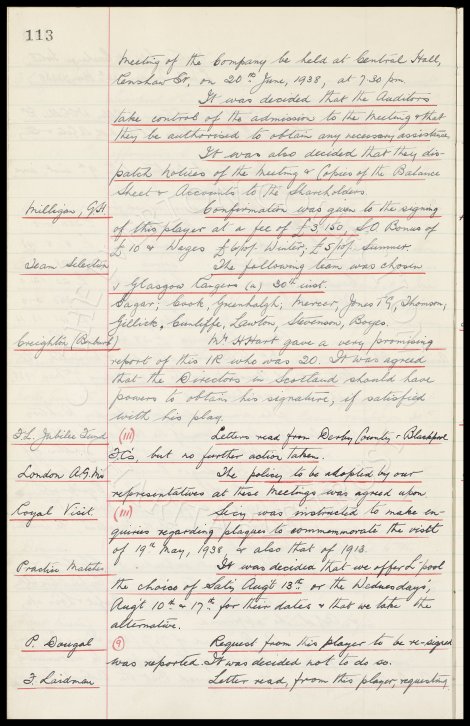 113
Meeting of the Company be held at Central Hall,
Renshaw St, on 20th June, 1938, at 7.30 pm.
It was decided that the Auditors
take control of the admission to the Meeting & that
they be authorised to obtain any necessary assistance
It was also decided that they des-
patch Notices of the Meeting & Copies of the Balance
Sheet & Accounts to the Shareholders.
Milligan, G.H. Confirmation was given to the signing
of this player at a fee of £3,150, S.O Bonus of
£10 & Wages £6 p/w Winter, £5 p/w Summer.
Team Selection The following team was chosen
v Glasgow Rangers (a) 30th inst.
Sagar; Cook, Greenhalgh; Mercer, Jones T.G, Thomson,
Gillick, Cunliffe, Lawton, Stevenson, Boyes.
Creighton Mr H Hart gave a very promising
report of this IR who was 20. It was agreed
that the Directors in Scotland should have
powers to obtain his signature, if satisfied
with his play
F.L. Jubilee Fund (111) Letters read from Derby County & Blackpool
F.Cs, but no further action taken.
London A.G.Ms The policy to be adopted by our
representatives at these Meetings was agreed upon
Royal Visit (111) Secy was instructed to make en-
quiries regarding plaques to commemorate the visit
of 19th May, 1938 & also that of 1913.
Practice Matches It was decided that we offer L'pool
the choice of Saty Augt 13th or the Wednesdays,
Augt 10th & 17th for their dates & that we take the
alternative.
P. Dougal (9) Request from this player to be re-signed
was reported. It was decided not to do so.
F. Laidman Letter read, from this player, requesting